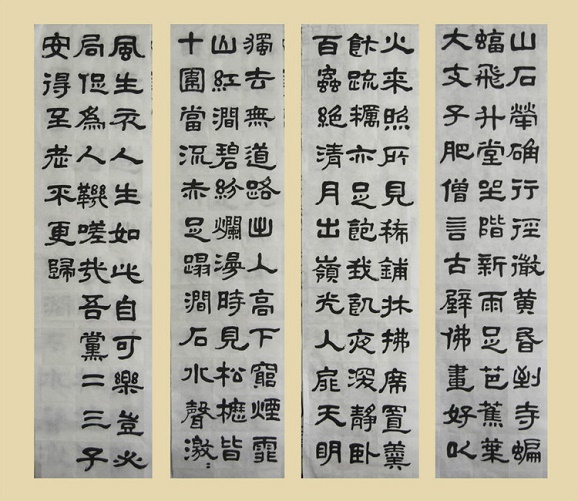 山石犖确行徑微黃昏到寺蝙
蝠飛升堂坐階新雨足芭蕉葉
大支子肥僧言古壁佛畫好以
火来照所見稀鋪牀拂席置羹
飰疏糲亦足飽我飢夜深靜卧
百蟲絕清月出嶺光入扉天明
獨去無道路出入高下窮煙霏
山紅澗碧紛爛漫時見松櫪皆
十圍當流赤足蹋澗石水聲激〻
風生衣人生如此自可樂豈必
局促為人鞿嗟哉吾黨二三子
安得至老不更歸